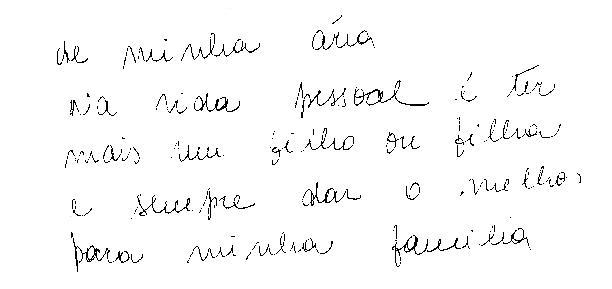 de minha ária
Na vida pessoal é ter
mais um filho ou filha
e sempre dar o melhor
para minha familia